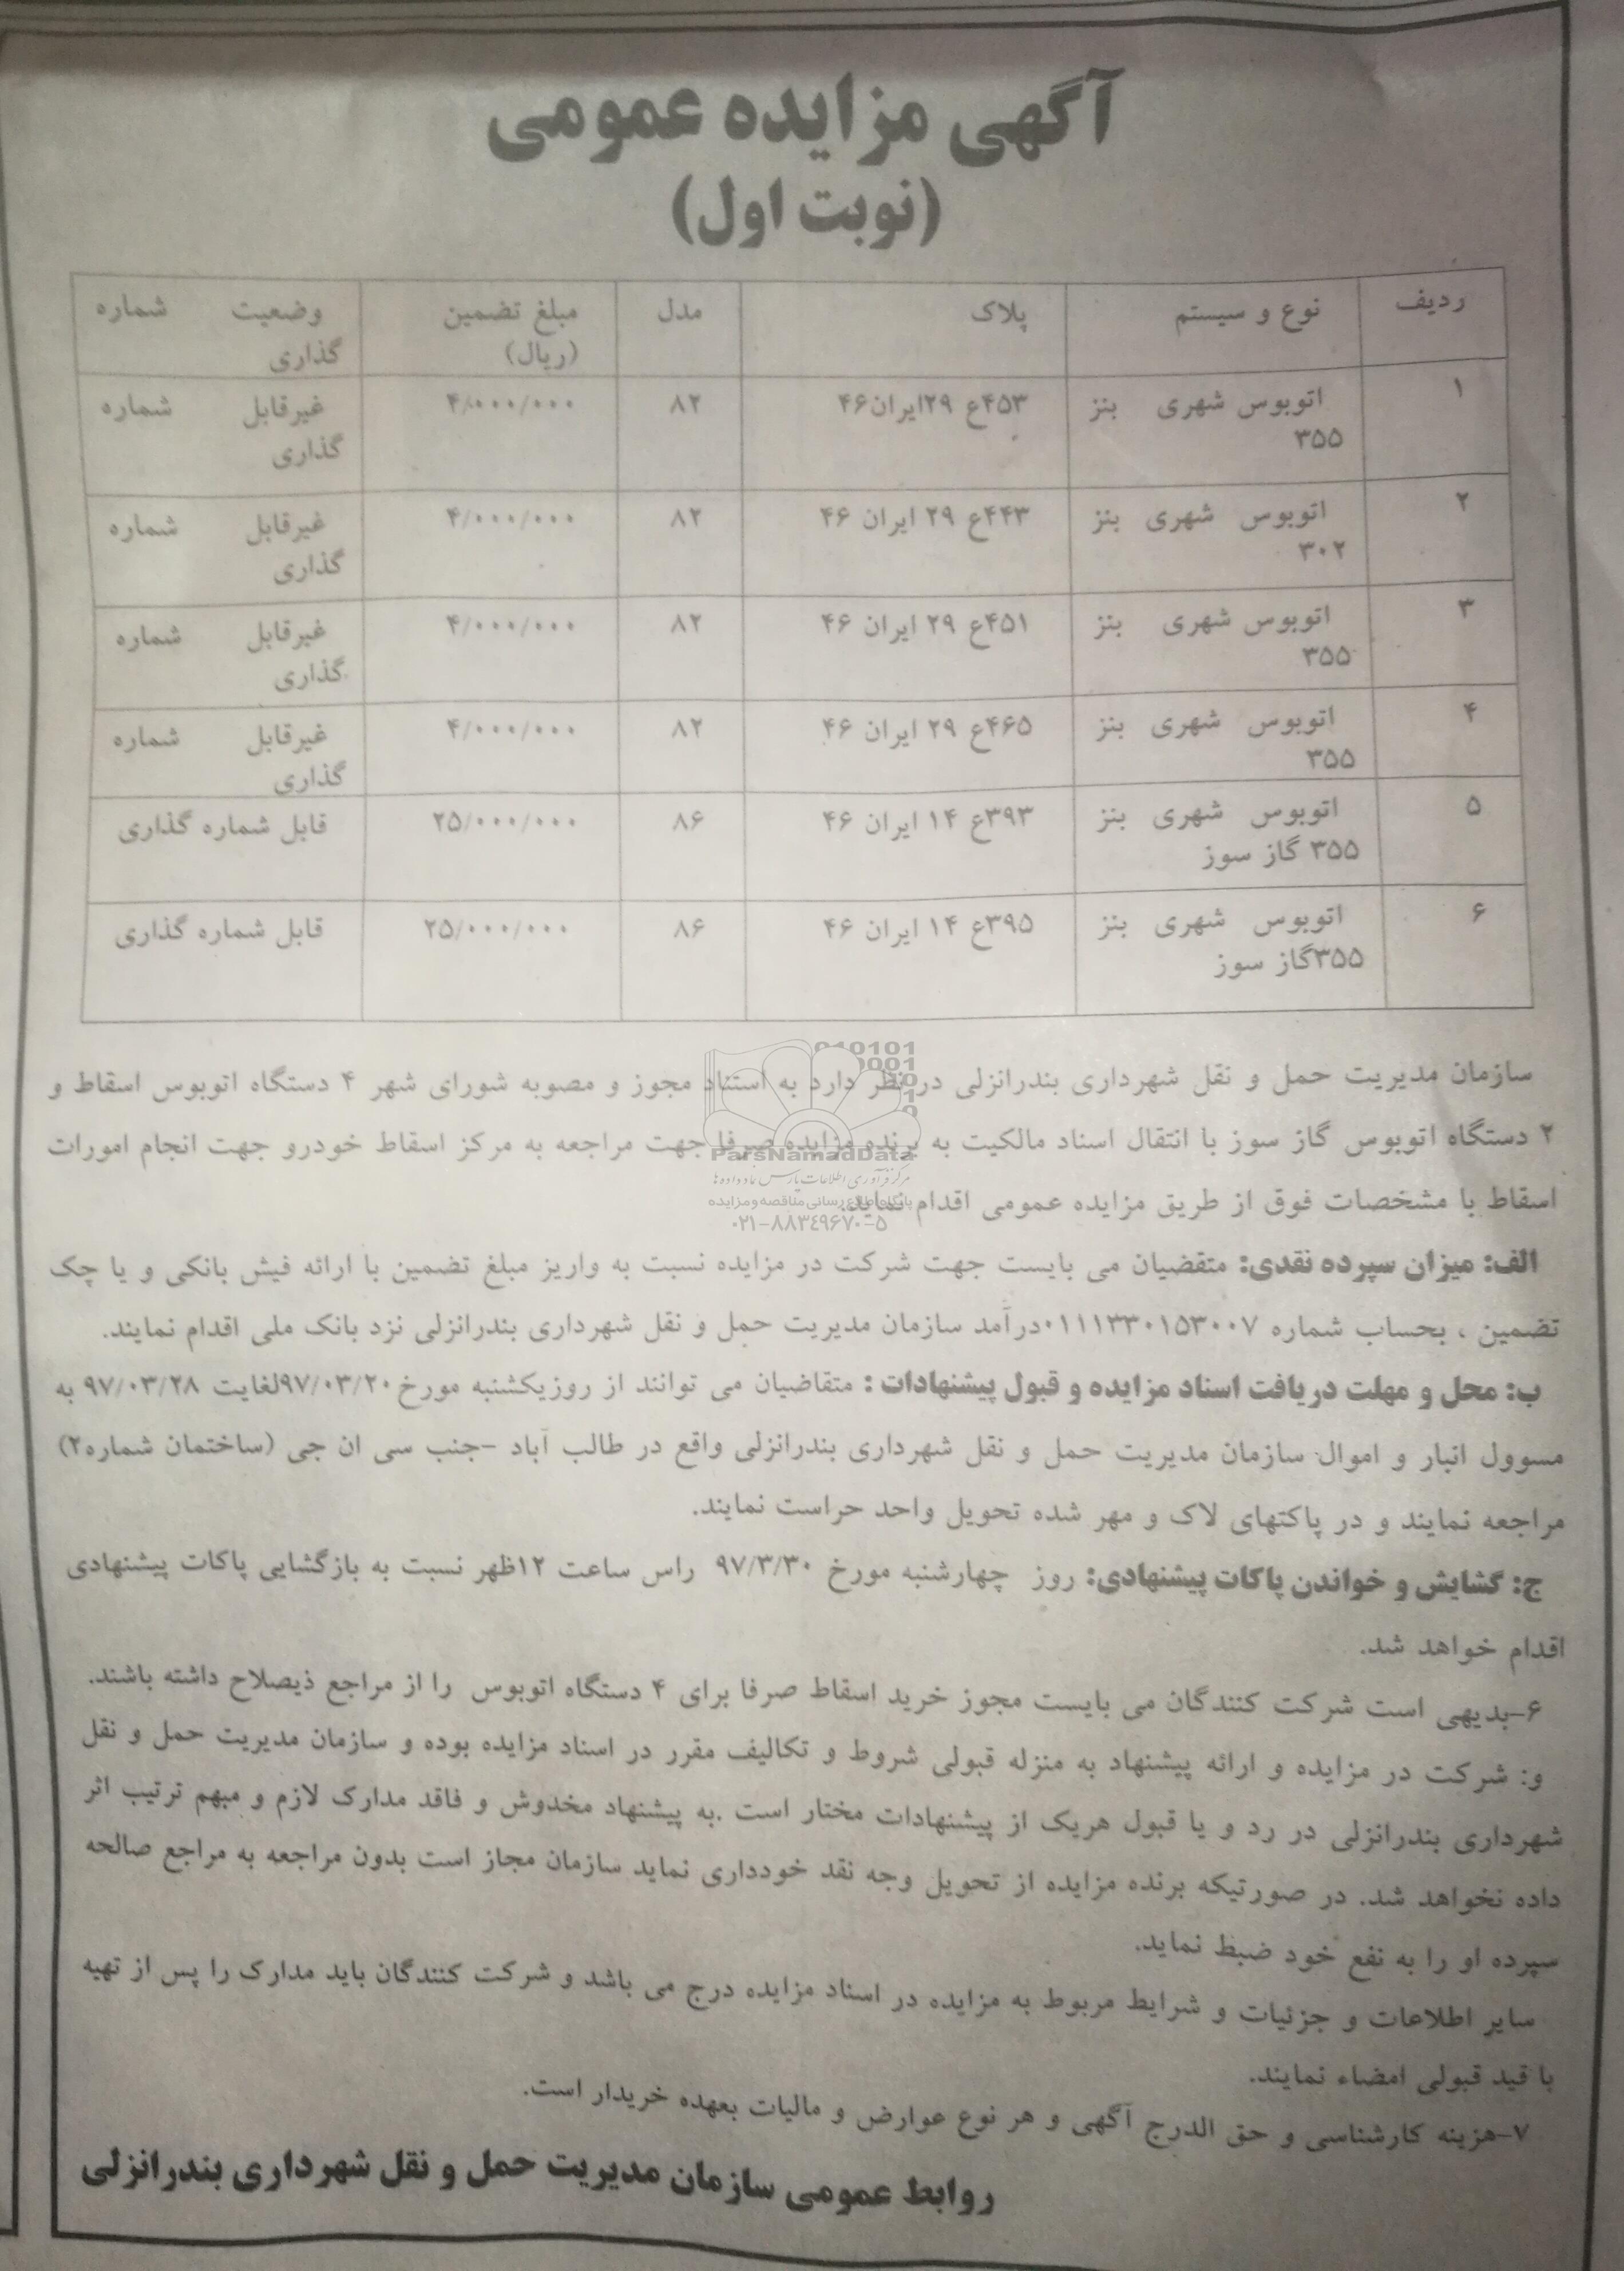 آگهی مزایده عمومی
(نوبت اول)
ردیف نوع و سیستم پلاک مدل مبلغ تضمین (ریال) وضعیت شماره گذاری
۱ اتوبوس شهری بنز ۳۵۵ ۴۵۳ع ۲۹ایران۴۶ ۸۲ ۴/۰۰۰/۰۰۰ غیرقابل شماره گذاری
۲ اتوبوس شهری بنز ۳۰۲ ۴۴۳ع ۲۹ ایران ۴۶ ۸۲ ۴/۰۰۰/۰۰۰ غیرقابل شماره گذاری
۳ اتوبوس شهری بنز ۳۵۵ ۴۵۱ع ۲۹ ایران ۴۶ ۸۲ ۴/۰۰۰/۰۰۰ غیرقابل شماره گذاری
۴ اتوبوس شهری بنز ۳۵۵ ۴۶۵ع ۲۹ ایران ۴۶ ۸۲ ۴/۰۰۰/۰۰۰ غیرقابل شماره گذاری
۵ اتوبوس شهری بنز ۳۵۵ گاز سوز ۳۹۳ع ۱۴ ایران ۴۶ ۸۶ ۲۵/۰۰۰/۰۰۰ قابل شماره گذاری
۶ اتوبوس شهری بنز ۳۵۵گاز سوز ۳۹۵ع ۱۴ ایران ۴۶ ۸۶ ۲۵/۰۰۰/۰۰۰ قابل شماره گذاری
سازمان مدیریت حمل و نقل شهرداری بندرانزلی در نظر دارد به استناد مجوز و مصوبه شورای شهر ۴ دستگاه اتوبوس اسقاط و
۲ دستگاه اتوبوس گاز سوز با انتقال اسناد مالکیت به برنده مزایده صرفا جهت مراجعه به مرکز اسقاط خودرو جهت انجام امورات
اسقاط با مشخصات فوق از طریق مزایده عمومی اقدام نماید.
ParsNamadData
مرکز فرآوری اطلاعات پارس نماد داده ها
پایگاه اطلاع رسانی مناقصه و مزایده
۰۲۱-۸۸۳۴۹۶۷۰-۵
الف: میزان سپرده نقدی: متقضیان می بایست جهت شرکت در مزایده نسبت به واریز مبلغ تضمین با ارائه فیش بانکی و یا چک
تضمین ، بحساب شماره ۰۱۱۱۳۳۰۱۵۳۰۰۷درآمد سازمان مدیریت حمل و نقل شهرداری بندرانزلی نزد بانک ملی اقدام نمایند.
ب: محل و مهلت دریافت اسناد مزایده و قبول پیشنهادات : متقاضیان می توانند از روزیکشنبه مورخ ۹۷/۰۳/۲۰لغایت ۹۷/۰۳/۲۸ به
مسوول انبار و اموال سازمان مدیریت حمل و نقل شهرداری بندرانزلی واقع در طالب آباد -جنب سی ان جی (ساختمان شماره۲)
مراجعه نمایند و در پاکتهای لاک و مهر شده تحویل واحد حراست نمایند.
ج: گشایش و خواندن پاکات پیشنهادی: روز چهارشنبه مورخ ۹۷/۳/۳۰ راس ساعت ۱۲ظهر نسبت به بازگشایی پاکات پیشنهادی
اقدام خواهد شد.
۶-بدیهی است شرکت کنندگان می بایست مجوز خرید اسقاط صرفا برای ۴ دستگاه اتوبوس را از مراجع ذیصلاح داشته باشند.
و: شرکت در مزایده و ارائه پیشنهاد به منزله قبولی شروط و تکالیف مقرر در اسناد مزایده بوده و سازمان مدیریت حمل و نقل
شهرداری بندرانزلی در رد و یا قبول هریک از پیشنهادات مختار است .به پیشنهاد مخدوش و فاقد مدارک لازم و مبهم ترتیب اثر
داده نخواهد شد. در صورتیکه برنده مزایده از تحویل وجه نقد خودداری نماید سازمان مجاز است بدون مراجعه به مراجع صالحه
سپرده او را به نفع خود ضبط نماید.
سایر اطلاعات و جزئیات و شرایط مربوط به مزایده در اسناد مزایده درج می باشد و شرکت کنندگان باید مدارک را پس از تهیه
با قید قبولی امضاء نمایند.
۷-هزینه کارشناسی و حق الدرج آگهی و هر نوع عوارض و مالیات بعهده خریدار است.
روابط عمومی سازمان مدیریت حمل و نقل شهرداری بندرانزلی